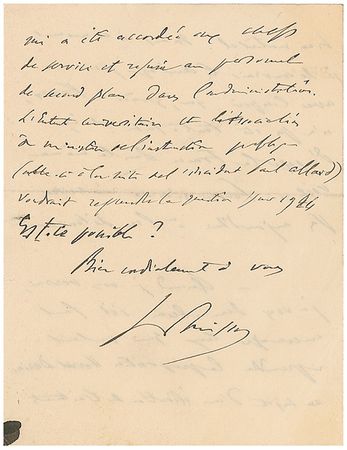 qui a été accordée aux chefs
de service et refusée au personnel
de second plan dans l'administration.
L'entente universitaire et l'association
du ministère de l'instruction publique
(celle-ci à la suite de l'incident Paul Allard)
voudrait reprendre la question pour 19
Est-ce possible ?
Bien cordialement à vous